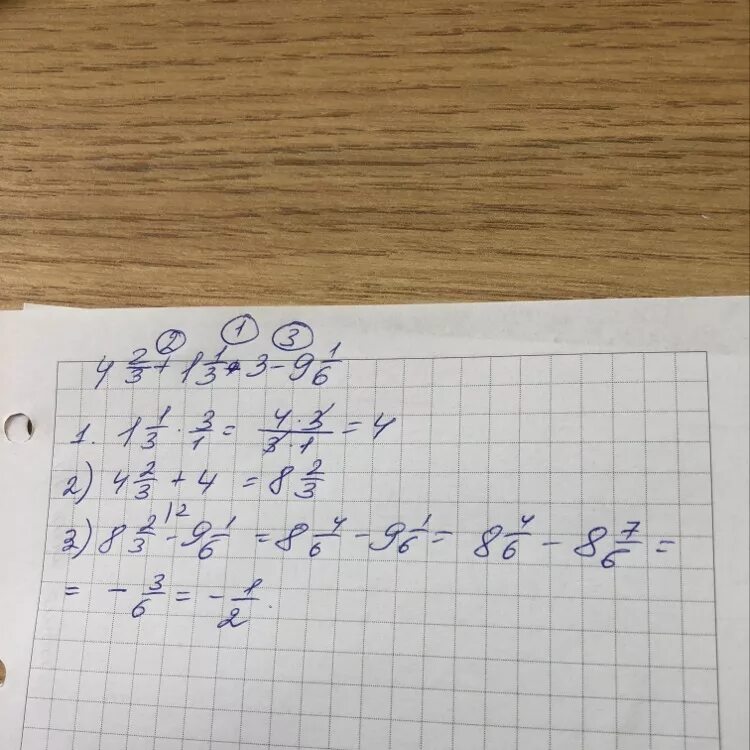 ② ① ③
4 2/3 + 1 1/3 · 3 - 9 1/6
1. 1 1/3 · 3/1 = 4·3/3·1 = 4
2) 4 2/3 + 4 = 8 2/3
3) 8 2/3 \2 - 9 1/6 = 8 4/6 - 9 1/6 = 8 4/6 - 8 7/6 =
= - 3/6 = - 1/2.